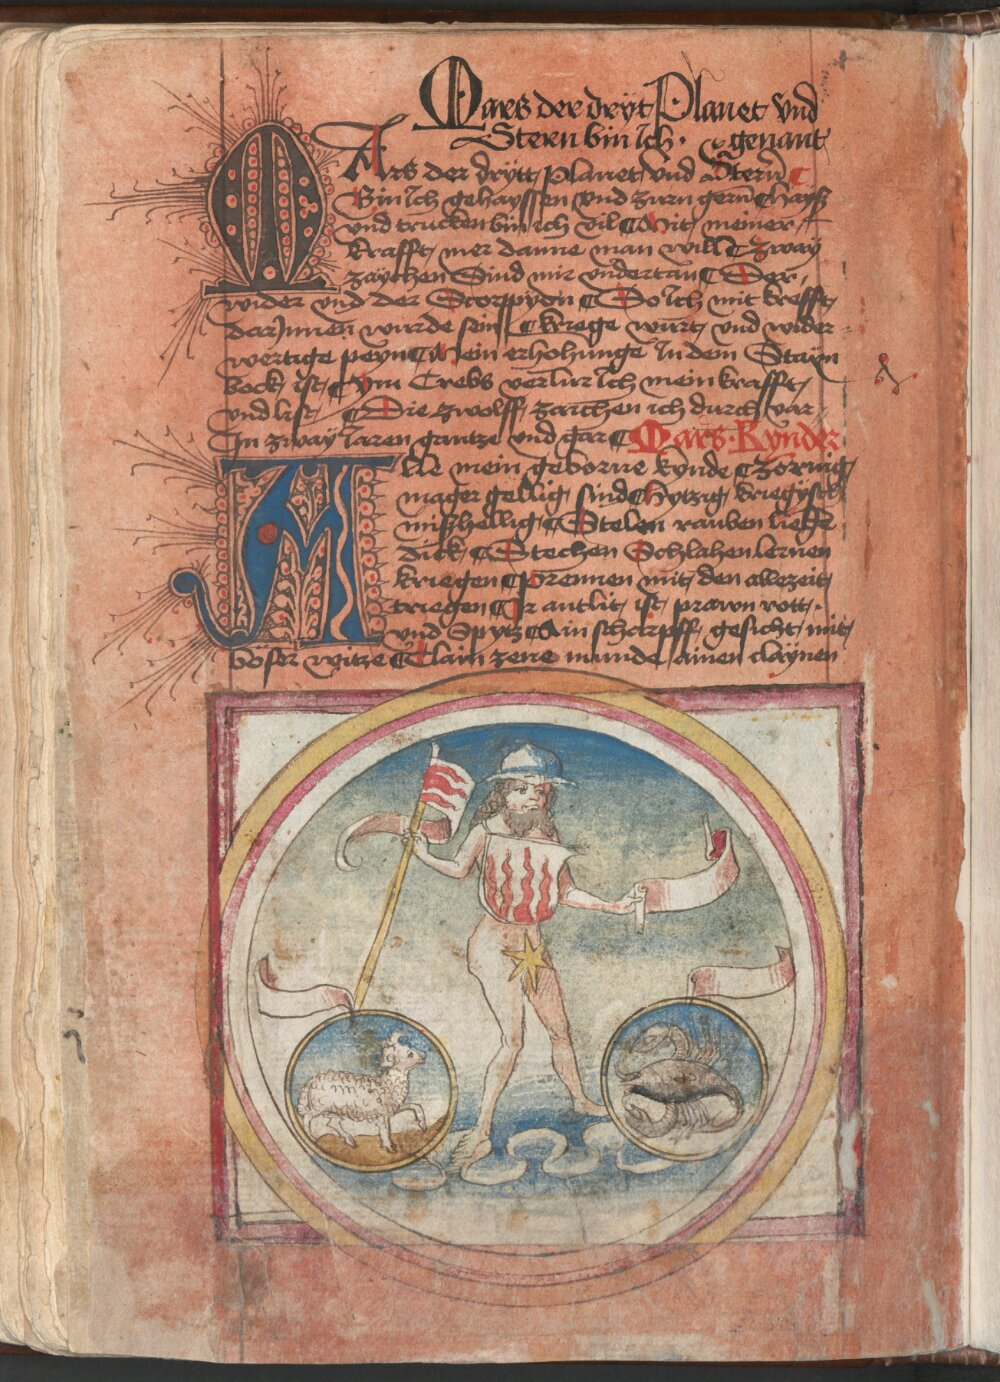 Mars der dryt Planet vnd
Stern bin Ich · genant
Mars der drytt planet vnd Stern
Bin Ich gehayssen vnd zurn gern Hayß
vnd trucken bin ich vil Mit meiner
krafft mer danne man will Zway
zaychen Sind mir vndertan Der
wider vnd der Scorpyon So Ich mit krefft
dar Jnnen wurde sein kriege wurt vnd wider
wertige peyn Mein erhohunge In dem Stayn
bock ist Jm Crebs verlur Ich mein krafft
vnd list Die zwolff zaichen ich durch var
In zway Jaren gantze vnd gar Mars · Kynder
Alle mein geborne kynde Zornig
mager gellig sind Hytzig kriegysch
misshellig Stelen rauben liegen
dick Stechen Schlahen lernen
kriegen Prennen mit den allezeit
triegen Ir antlit ist prawn rott
vnd Spytz Ain scharpff gesicht mit
boser witze Clain zene munde ainen claynen